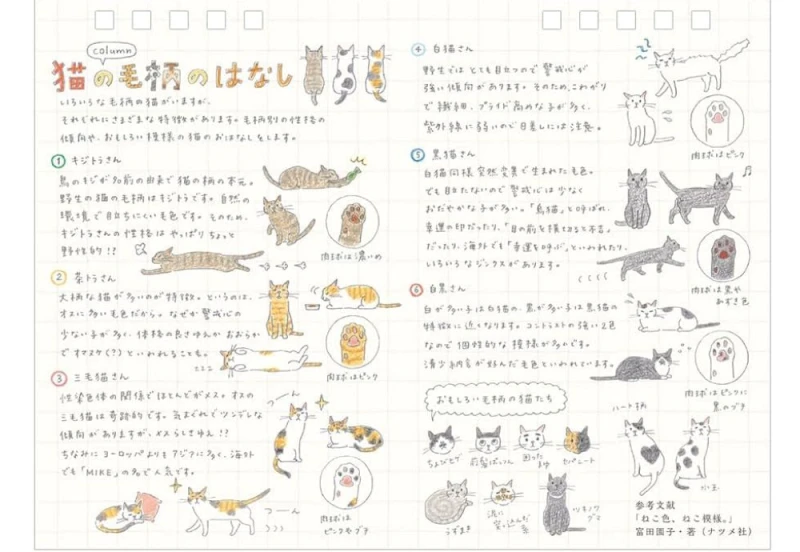 column
猫の毛柄のはなし
いろいろな毛柄の猫がいますが、
それぞれにさまざまな特徴があります。毛柄別の性格の
傾向や、おもしろい模様の猫のおはなしをします。
① キジトラさん
鳥のキジが名前の由来で猫の柄の本元。
野生の猫の毛柄はキジトラです。自然の
環境で目立ちにくい毛色です。そのため、
キジトラさんの性格はやっぱりちょっと
野性的!?
肉球は濃いめ
② 茶トラさん
大柄な猫が多いのが特徴。というのは、
オスに多い毛色だから。なぜか警戒心の
少ない子が多く、体格の良さゆえかおおらか
でオマスケ(?)といわれることも。
肉球はピンク
③ 三毛猫さん
性染色体の関係でほとんどがメス。オスの
三毛猫は奇跡的です。気まぐれでツンデレな
傾向がありますが、メスらしさゆえ!?
ちなみにヨーロッパよりもアジアに多く、海外
でも「MIKE」の名で人気です。
つーん
つーん
肉球は
ピンクやブチ
④ 白猫さん
野生ではとても目立つので警戒心が
強い傾向があります。そのため、こわがり
で繊細、プライド高めな子が多く、
紫外線に弱いので日差しには注意。
肉球はピンク
⑤ 黒猫さん
白猫同様突然変異で生まれた毛色。
でも目立たないので警戒心は少なく
おだやかな子が多い。「烏猫」と呼ばれ、
幸運の印だったり、「目の前を横切ると不吉」
だったり、海外でも「幸運を呼ぶ」といわれたり、
いろいろなジンクスがあります。
肉球は黒や
あずき色
⑥ 白黒さん
白が多い子は白猫の、黒が多い子は黒猫の
特徴に近くなります。コントラストの強い2色
なので個性的な模様が多めです。
清少納言が好んだ毛色といわれています。
肉球はピンクに
黒のブチ
おもしろい毛柄の猫たち
ちょびヒゲ
前髪ぱっつん
困った
まゆ
セパレート
ハート柄
うずまき
ツキノワ
グロ
参考文献
「ねこ色、ねこ模様。」
富田園子・著(ナツメ社)